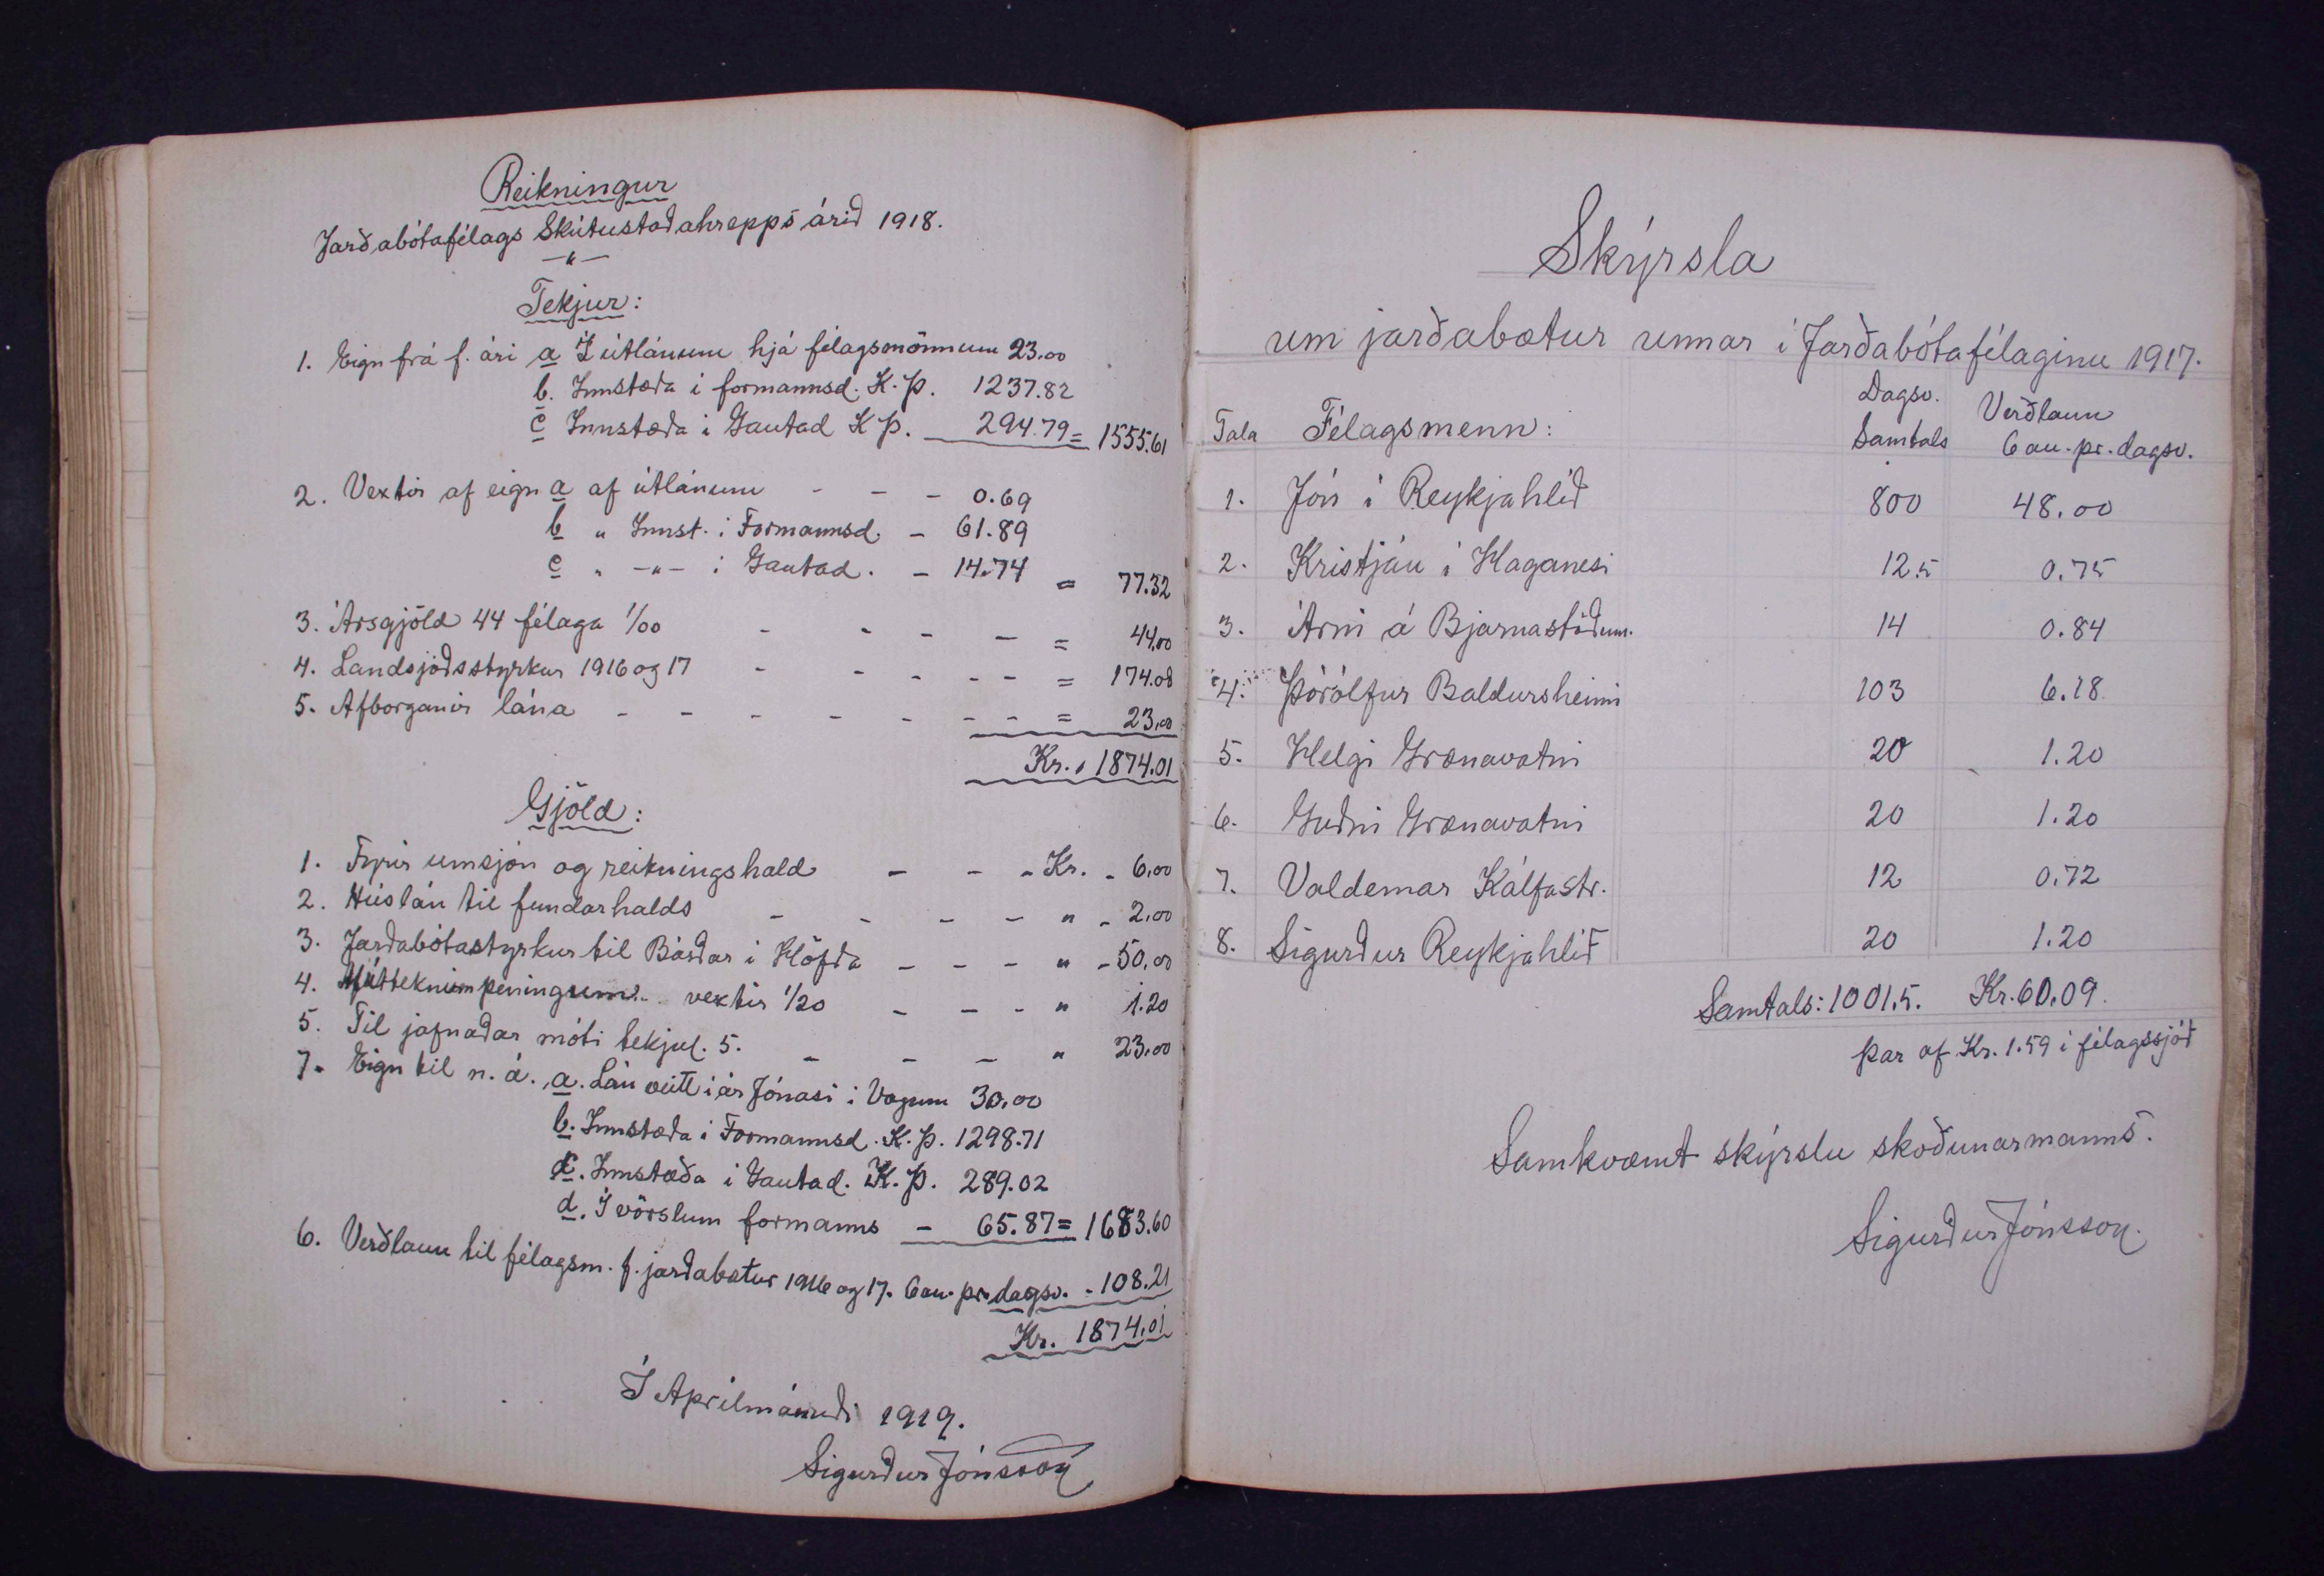 Reikningur
Jarðabótafélags Skútustaðahrepps árið 1918.
—"—
Tekjur:
1. Eign frá f. ári a Í útlánum hjá félagsmönnum 23.00
b. Innstæða í formannsd. K. Þ. 1237.82
c Innstæða í Gautad K Þ. 294.79 = 1555.61
2. Vextir af eign a af útlánum - - - 0.69
b " Innst. í Formannsd. - 61.89
c " -"- í Gautad. - 14.74 = 77.32
3. Ársgjöld 44 félaga 1/00 - - - - = 44.00
4. Landsjóðsstyrkur 1916 og 17 - - - - - = 174.08
5. Afborganir lána - - - - - - - = 23.00
Kr. 1874.01
Gjöld:
1. Fyrir umsjón og reikningshald - - - Kr. - 6.00
2. Húslán til fundarhalds - - - - " - 2.00
3. Jarðabótastyrkur til Bárðar í Höfða - - - " - 50.00
4. peningum vextir 1/20 - - - " 1.20
5. Til jafnaðar móti tekjul. 5. - - - " 23.00
7. Eign til n. á., a. Lán veitt í ár Jónasi í Vogum 30.00
b. Innstæða í Formannsd. K. Þ. 1298.71
c. Innstæða í Gautad. K. Þ. 289.02
d. Í vörslum formanns - 65.87 = 1683.60
6. Verðlaun til félagsm. f. jarðabætur 1916 og 17. 6 au. pr. dagsv. - 108.21
Kr. 1874.01
Í Aprílmánuði 1919.
Sigurður Jónsson
Skýrsla
um jarðabætur unnar í Jarðabótafélaginu 1917.
Tala Félagsmenn: Dagsv. Samtals Verðlaun 6 au. pr. dagsv.
1. Jón í Reykjahlíð 800 48.00
2. Kristján í Haganesi 12.5 0.75
3. Árni á Bjarnastöðum. 14 0.84
4. Þórólfur Baldursheimi 103 6.18
5. Helgi Grænavatni 20 1.20
6. Guðni Grænavatni 20 1.20
7. Valdemar Kálfastr. 12 0.72
8. Sigurður Reykjahlíð 20 1.20
Samtals: 1001.5. Kr. 60.09.
Þar af Kr. 1.59 í félagssjóð
Samkvæmt skýrslu skoðunarmanns.
Sigurður Jónsson.